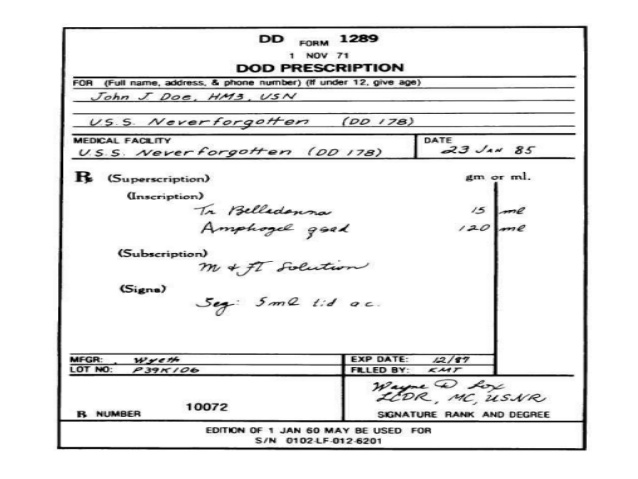 DD FORM 1289
1 NOV 71
DOD PRESCRIPTION
FOR (Full name, address, & phone number) (If under 12, give age)
John J. Doe, HM3, USN
U.S.S. Neverforgotten (DD 178)
MEDICAL FACILITY
U.S.S. Neverforgotten (DD 178)
DATE
23 JAN 85
℞ (Superscription) gm or ml.
(Inscription)
Tr Belladonna 15 ml
Amphogel qsad 120 ml
(Subscription)
M & Ft Solution
(Signa)
Sig: 5ml tid a.c.
MFGR: Wyeth EXP DATE: 12/87
LOT NO: P39K106 FILLED BY: KMT
℞ NUMBER 10072
Wayne D Lox
LCDR, MC, USNR
SIGNATURE RANK AND DEGREE
EDITION OF 1 JAN 60 MAY BE USED FOR
S/N 0102-LF-012-6201